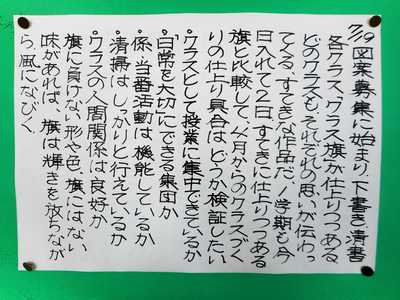 7/19 図案募集に始まり、下書き、清書
各クラス、クラス旗が仕上りつつある
どのクラスも、それぞれの思いが伝わっ
てくる、すてきな作品だ！学期も今
日入れて2日、すてきに仕上りつつある
旗と比較して、4月からのクラスづく
りの仕上り具合は、どうか検証したい
・クラスとして授業に集中できているか
・「日常を大切」にできる集団か
・係、当番活動は、機能しているか
・清掃は、しっかりと行えているか
・クラスの人間関係は、良好か
旗に負けない形や色、旗にはない
味があれば、旗は輝きを放ちなが
ら、風になびく。